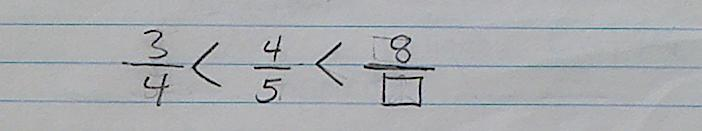 3/4 < 4/5 < 8/□